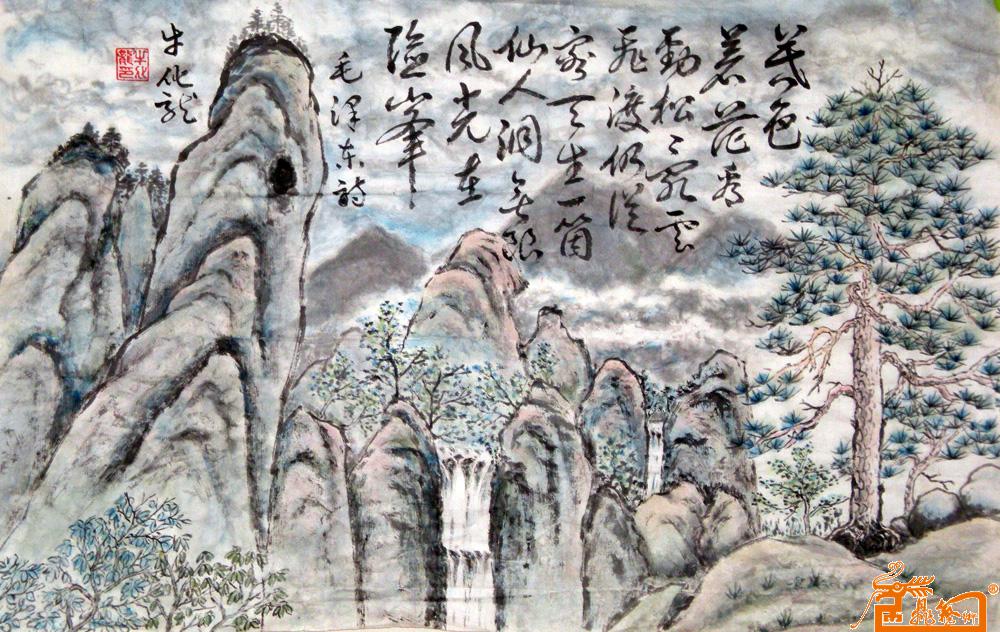 暮色
苍茫看
劲松々乱雲
飞渡仍从
容天生一箇
仙人洞无限
风光在
险峯
毛泽东诗
牛化龙